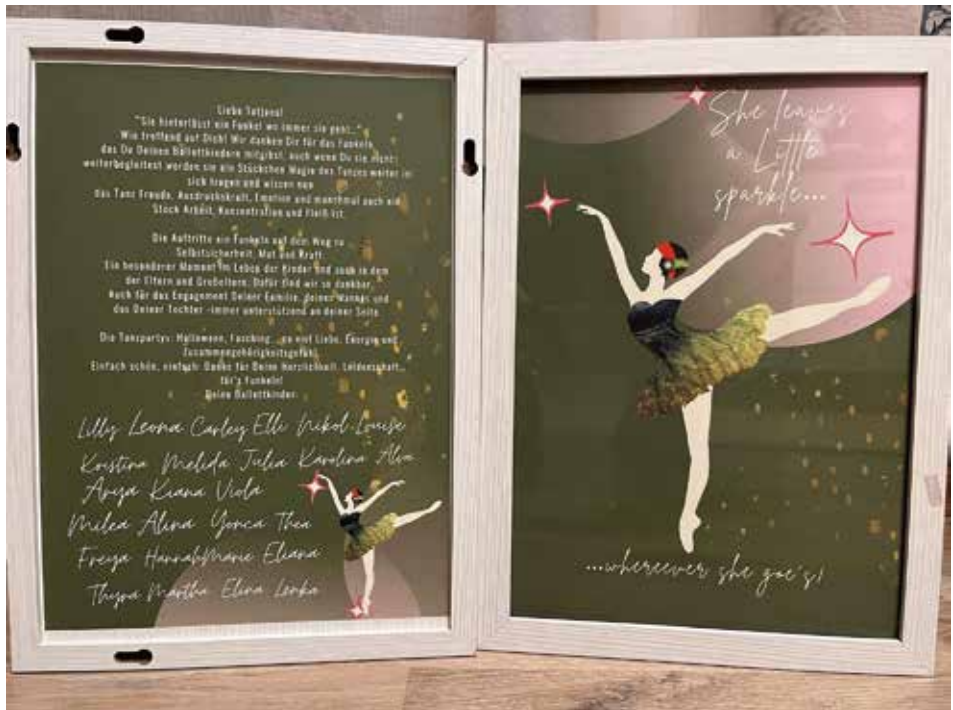 Liebe Tatjana!
"Sie hinterlässt ein Funkel wo immer sie geht..."
Wie treffend auf Dich! Wir danken Dir für das Funkeln
das Du Deinen Ballettkindern mitgibst, auch wenn Du sie nicht
weiterbegleitest werden sie ein Stückchen Magie des Tanzes weiter in
sich tragen und wissen nun
das Tanz Freude, Ausdruckskraft, Emotion und manchmal auch ein
Stück Arbeit, Konzentration und Fleiß ist.
Die Auftritte ein Funkeln auf dem Weg zu
Selbstsicherheit, Mut und Kraft.
Ein besonderer Moment im Leben der Kinder und auch in dem
der Eltern und Großeltern. Dafür sind wir so dankbar.
Auch für das Engagement Deiner Familie, Deines Mannes und
das Deiner Tochter -immer unterstützend an deiner Seite
Die Tanzpartys: Halloween, Fasching... so viel Liebe, Energie und
Zusammengehörigkeitsgefühl.
Einfach schön, einfach: Danke für Deine Herzlichkeit, Leidenschaft...
für's Funkeln!
Deine Ballettkinder:
Lilly Leona Carley Elli Nikol Louise
Kristina Melida Julia Karolina Alva
Anya Kiana Viola
Milea Alina Yonca Thea
Freya HannahMarie Eliana
Thyra Martha Elina Lenka
She leaves
a Little
sparkle...
...whereever she goe's!